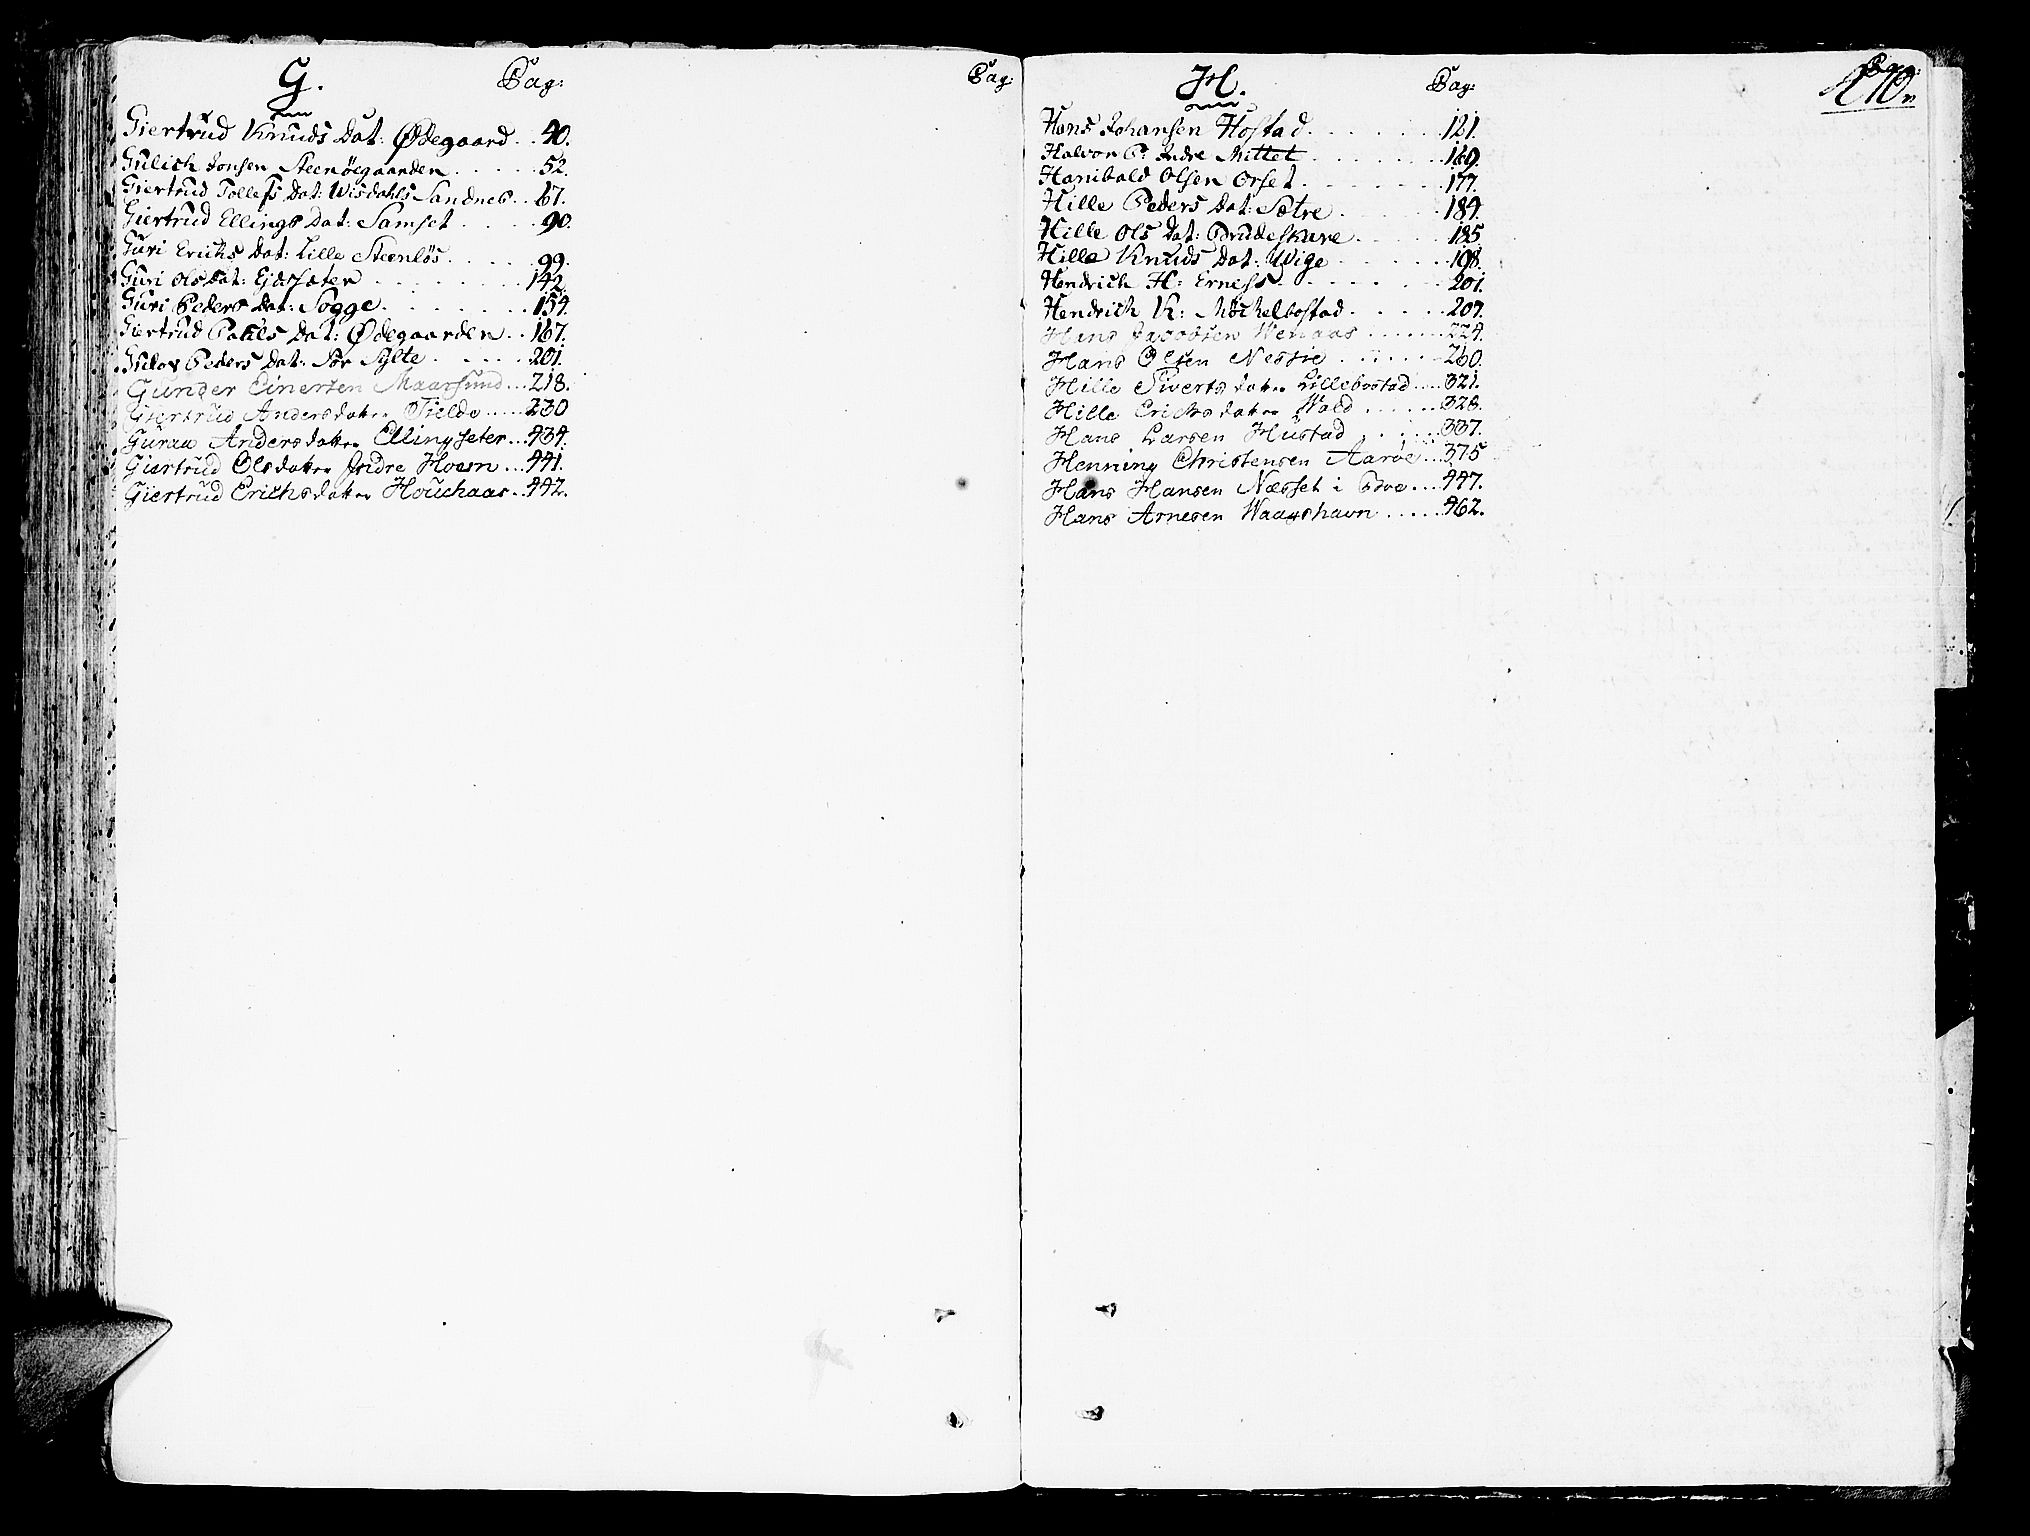 G. Pag: Pag:
Giertrud Knuds Dat: Ødegaard . . 40.
Gulich Jonsen Steenøegaarden . . . . . 52.
Giertrud Tollefs Dat: Wisdahls Sandnes . . 67.
Giertrud Ellings Dat: Samset . . . . . 90.
Guri Erichs Dat: Lille Steenløs . . . . . 99.
Guri Ols Dat: Eidsæter . . . . . . . . 142.
Guri Peders Dat: Sogge . . . . . . . 154.
Giertrud Pouls Dat: Ødegaarden . . 167.
Peders Dat: Sør Sylte . . . . 201.
Gunder Einersen Maarsund . . . 218.
Giertrud Andersdatter Tielde . . . . . 230
Guraa Andersdatter Ellingseter . . . 434.
Giertrud Olsdatter Indre Hoem . . . 441.
Giertrud Erichsdatter Houchaas . . 442.
H. Pag: Pag:
Hans Johansen Hostad . . . . . . . 121.
Halvor P: Indre Mittet . . . . . . . 160.
Hanibald Olsen Orset . . . . . . . 177.
Hille Peders Dat: Sætre . . . . . 184.
Hille Ols Dat: . . . . . 185
Hille Knuds Dat: Wige . . . . . . 198.
Hendrich H: Erness . . . . . . . . 201.
Hendrich K: Møchelbostad . . . . . 207.
Hans Jacobsen Wenaas . . . . . . 224.
Hans Olsen Nessie . . . . . . 260.
Hille Siverts datter Lillebostad . . . . 321.
Hille Erichsdatter Wold . . . . . . 328.
Hans Larsen Hustad . . . . . 337.
Henning Christensen Aarøe . . . 375
Hans Hansen Næsset i . . . 447.
Hans Arnesen Waagshavn . . . . . 462.